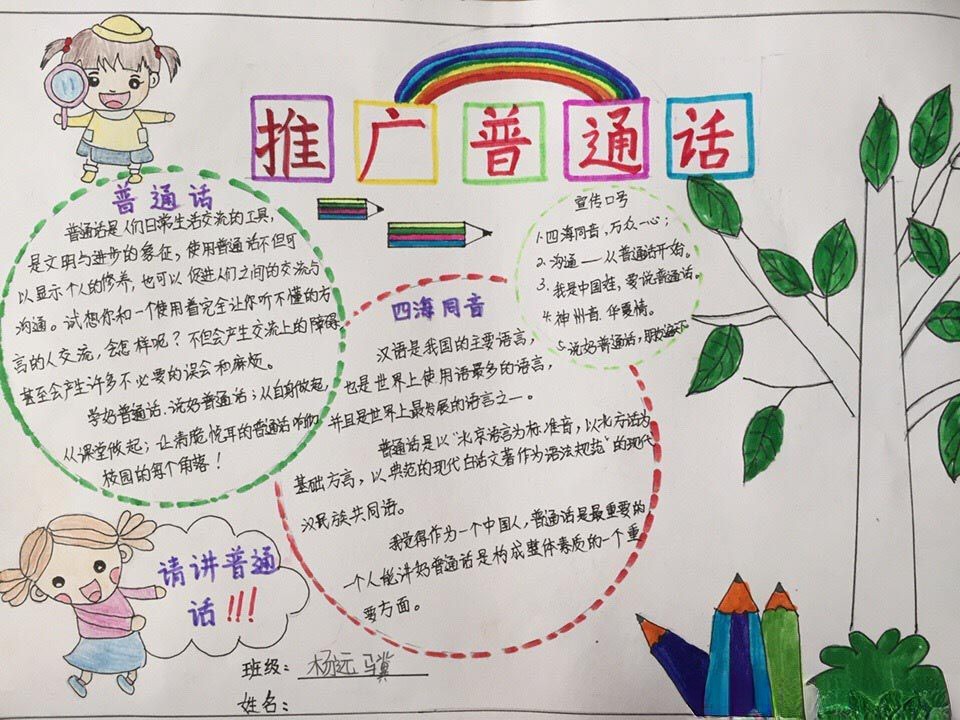 推广普通话
普通话
普通话是人们日常生活交流的工具，
是文明与进步的象征，使用普通话不但可
以显示个人的修养，也可以促进人们之间的交流与
沟通。试想你和一个使用着完全让你听不懂的方
言的人交流，会怎样呢？不但会产生交流上的障碍，
甚至会产生许多不必要的误会和麻烦。
学好普通话、说好普通话；从自身做起，
从课堂做起；让清脆悦耳的普通话响彻
校园的每个角落！
宣传口号
1.四海同音，万众一心；
2.沟通——从普通话开始。
3.我是中国娃，要说普通话。
4.神州音，华夏情。
5.说好普通话，朋友遍天
四海同音
汉语是我国的主要语言，
也是世界上使用语最多的语言，
并且是世界上最发展的语言之一。
普通话是以"北京语言为标准音，以北方话为
基础方言，以典范的现代白话文著作为语法规范"的现代
汉民族共同语。
我觉得作为一个中国人，普通话是最重要的
一个人能讲好普通话是构成整体素质的一个重
要方面。
请讲普通
话!!!
班级：杨远骥
姓名：